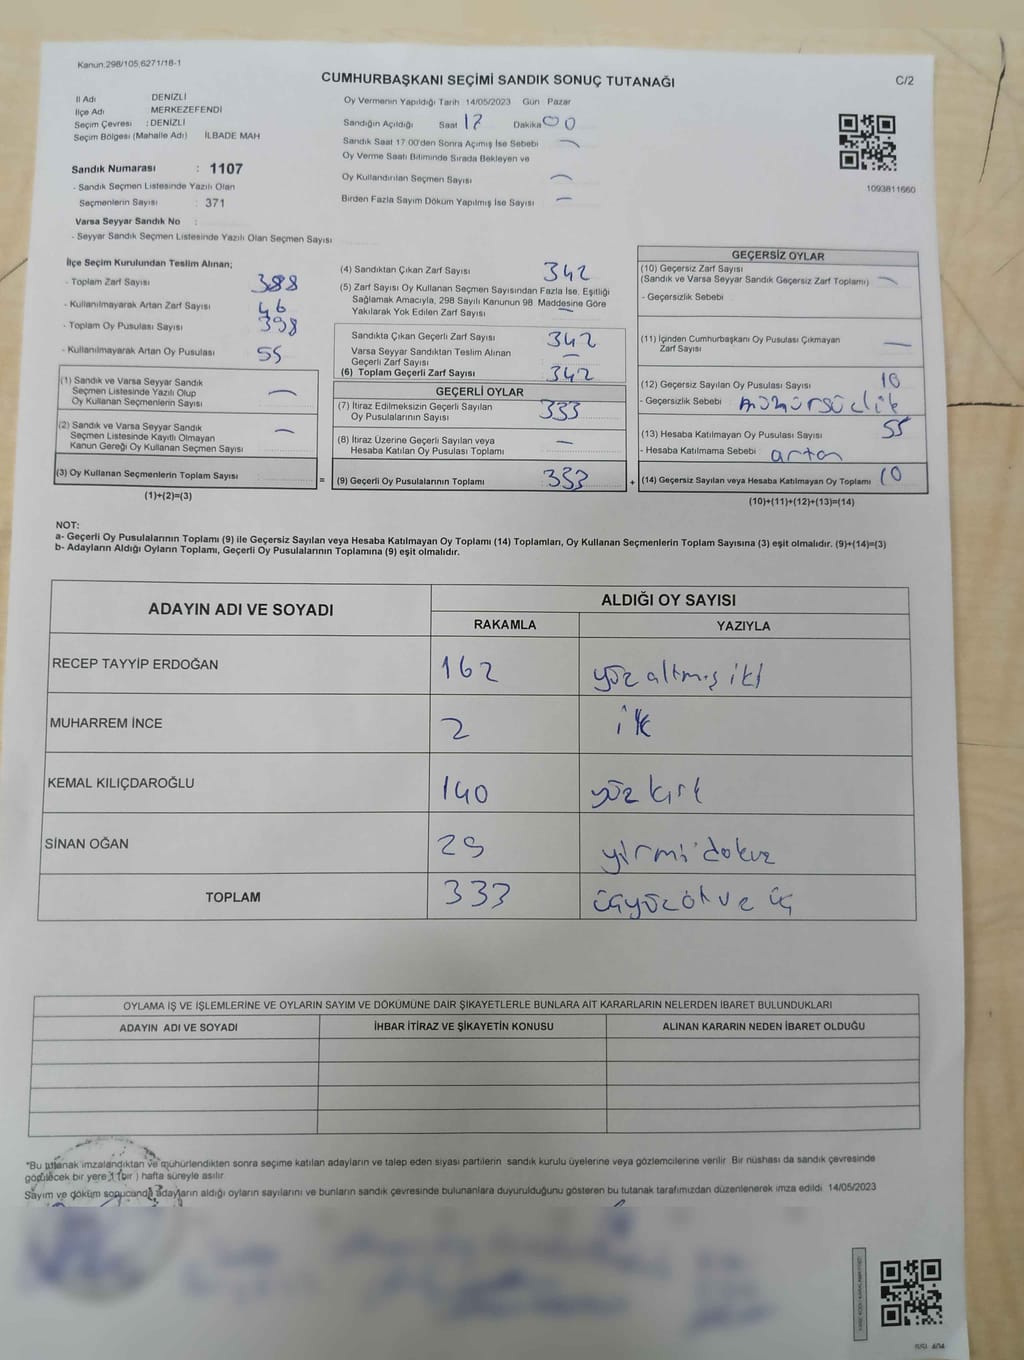 Kanun,298/105,6271/18-1
CUMHURBAŞKANI SEÇİMİ SANDIK SONUÇ TUTANAĞI
C/2
İl Adı DENİZLİ
İlçe Adı MERKEZEFENDİ
Seçim Çevresi : DENİZLİ
Seçim Bölgesi (Mahalle Adı) İLBADE MAH
Sandık Numarası : 1107
- Sandık Seçmen Listesinde Yazılı Olan
Seçmenlerin Sayısı : 371
Varsa Seyyar Sandık No :
- Seyyar Sandık Seçmen Listesinde Yazılı Olan Seçmen Sayısı
Oy Vermenin Yapıldığı Tarih 14/05/2023 Gün Pazar
Sandığın Açıldığı Saat 17 Dakika 00
Sandık Saat 17.00'den Sonra Açılmış İse Sebebi —
Oy Verme Saati Bitiminde Sırada Bekleyen ve
Oy Kullandırılan Seçmen Sayısı —
Birden Fazla Sayım Döküm Yapılmış İse Sayısı —
1093811660
İlçe Seçim Kurulundan Teslim Alınan;
- Toplam Zarf Sayısı 388
- Kullanılmayarak Artan Zarf Sayısı 46
- Toplam Oy Pusulası Sayısı 398
- Kullanılmayarak Artan Oy Pusulası 55
(1) Sandık ve Varsa Seyyar Sandık
Seçmen Listesinde Yazılı Olup
Oy Kullanan Seçmenlerin Sayısı —
(2) Sandık ve Varsa Seyyar Sandık
Seçmen Listesinde Kayıtlı Olmayan
Kanun Gereği Oy Kullanan Seçmen Sayısı —
(3) Oy Kullanan Seçmenlerin Toplam Sayısı =
(1)+(2)=(3)
(4) Sandıktan Çıkan Zarf Sayısı 342
(5) Zarf Sayısı Oy Kullanan Seçmen Sayısından Fazla İse, Eşitliği
Sağlamak Amacıyla, 298 Sayılı Kanunun 98. Maddesine Göre
Yakılarak Yok Edilen Zarf Sayısı —
Sandıkta Çıkan Geçerli Zarf Sayısı 342
Varsa Seyyar Sandıktan Teslim Alınan
Geçerli Zarf Sayısı —
(6) Toplam Geçerli Zarf Sayısı 342
GEÇERLİ OYLAR
(7) İtiraz Edilmeksizin Geçerli Sayılan
Oy Pusulalarının Sayısı 333
(8) İtiraz Üzerine Geçerli Sayılan veya
Hesaba Katılan Oy Pusulası Toplamı —
(9) Geçerli Oy Pusulalarının Toplamı 333 +
GEÇERSİZ OYLAR
(10) Geçersiz Zarf Sayısı
(Sandık ve Varsa Seyyar Sandık Geçersiz Zarf Toplamı) —
- Geçersizlik Sebebi
(11) İçinden Cumhurbaşkanı Oy Pusulası Çıkmayan
Zarf Sayısı —
(12) Geçersiz Sayılan Oy Pusulası Sayısı 10
- Geçersizlik Sebebi mühürsüzlük
(13) Hesaba Katılmayan Oy Pusulası Sayısı 55
- Hesaba Katılmama Sebebi artan
(14) Geçersiz Sayılan veya Hesaba Katılmayan Oy Toplamı 10
(10)+(11)+(12)+(13)=(14)
NOT:
a- Geçerli Oy Pusulalarının Toplamı (9) ile Geçersiz Sayılan veya Hesaba Katılmayan Oy Toplamı (14) Toplamları, Oy Kullanan Seçmenlerin Toplam Sayısına (3) eşit olmalıdır. (9)+(14)=(3)
b- Adayların Aldığı Oyların Toplamı, Geçerli Oy Pusulalarının Toplamına (9) eşit olmalıdır.
ADAYIN ADI VE SOYADI
ALDIĞI OY SAYISI
RAKAMLA YAZIYLA
RECEP TAYYİP ERDOĞAN 162 yüz altmış iki
MUHARREM İNCE 2 iki
KEMAL KILIÇDAROĞLU 140 yüz kırk
SİNAN OĞAN 29 yirmi dokuz
TOPLAM 333 üçyüzotuz üç
OYLAMA İŞ VE İŞLEMLERİNE VE OYLARIN SAYIM VE DÖKÜMÜNE DAİR ŞİKAYETLERLE BUNLARA AİT KARARLARIN NELERDEN İBARET BULUNDUKLARI
ADAYIN ADI VE SOYADI İHBAR İTİRAZ VE ŞİKAYETİN KONUSU ALINAN KARARIN NEDEN İBARET OLDUĞU
*Bu tutanak imzalandıktan ve mühürlendikten sonra seçime katılan adayların ve talep eden siyasi partilerin sandık kurulu üyelerine veya gözlemcilerine verilir. Bir nüshası da sandık çevresinde
görülecek bir yere 1 (bir ) hafta süreyle asılır.
Sayım ve döküm sonucunda adayların aldığı oyların sayılarını ve bunların sandık çevresinde bulunanlara duyurulduğunu gösteren bu tutanak tarafımızdan düzenlenerek imza edildi 14/05/2023